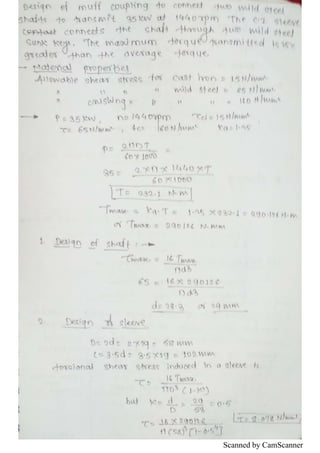 Design of muff coupling to connect two mild steel
shafts to transmit 35 kW at 1440 rpm The C.I. sleeve
contact connects the shaft through two mild steel
Sunk keys. The maximum torque transmitted is 25%
greater than the average torque.
→ Material properties
Allowable shear stress for cast Iron = 15 N/mm²
" " " " mild steel = 65 N/mm²
" crushing " " " = 160 N/mm²
P = 35 kW, n = 1440 rpm τci = 15 N/mm²
τ = 65 N/mm², = 160 N/mm² = 1.25
P = 2πnT / 60×1000 =
35 = 2×π×1440×T / 60×1000
T = 232.1 N.m
Tmax = ka.T = 1.25 × 232.1 = 290.126 N.m
or Tmax = 290126 N.mm
1. Design of shaft : →
τmax = 16 Tmax / πd3
65 = 16 × 290126 / πd3
d = 28.3 or 29 mm
2. Design sleeve
D = 2d = 2×29 = 58 mm
L = 3.5d = 3.5×29 = 102 mm
torsional shear stress induced in a sleeve is
τ = 16 Tmax / πD³ (1-k⁴)
but k = d/D = 29/58 = 0.5
τ = 16 × 290126 / π(58)³ [1-0.5⁴] τ = 8.078 N/mm²
Scanned by CamScanner